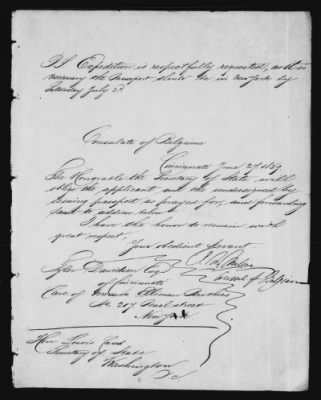 P.S. Expedition is respectfully requested, as it is
necessary the Passport should be in New York by
Saturday July 2d.
Consulate of Belgium
Cincinnati June 27 1859
The Honorable the Secretary of State will
oblige the applicant and the undersigned by
issuing passport as prayed for, and forwarding
same to address below
I have the honor to remain with
great respect,
Your obedient servant
Consul of Belgium
Tyler Davidson Esq
of Cincinnati
Care of Brothers
No. 207 Pearl street
New York
Hon Lewis Cass
Secretary of State
Washington
DC